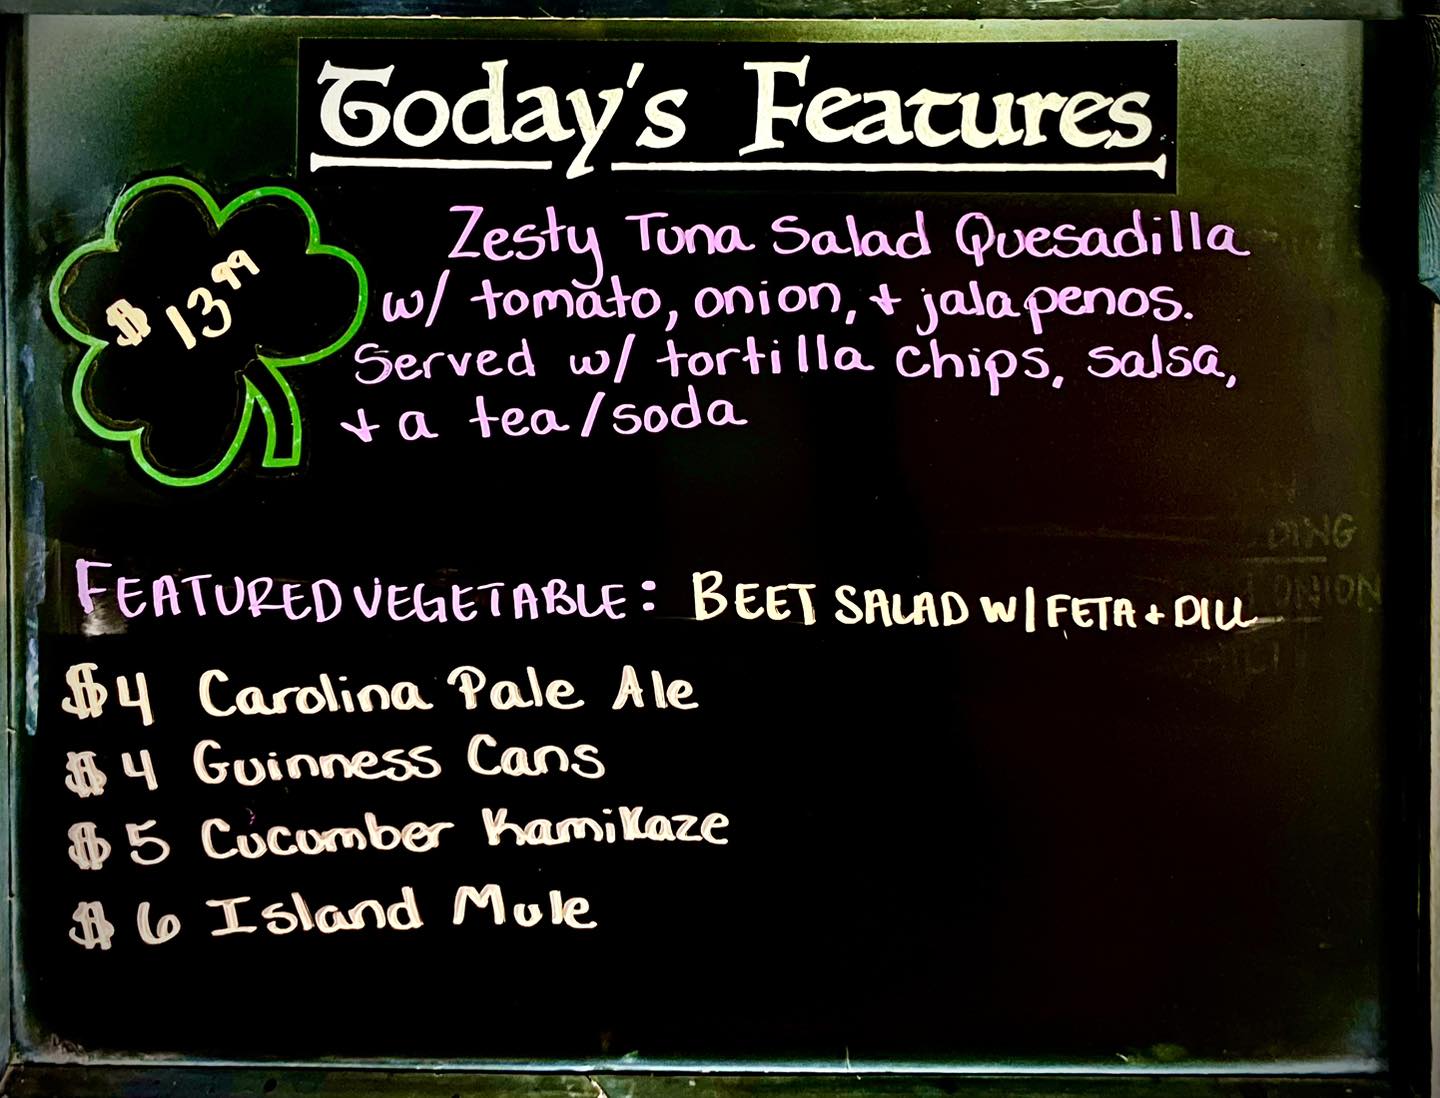 Today's Features
$13.99
Zesty Tuna Salad Quesadilla
w/ tomato, onion, + jalapenos.
Served w/ tortilla chips, salsa,
+ a tea/soda
FEATURED VEGETABLE: BEET SALAD W/ FETA + DILL
$4 Carolina Pale Ale
$4 Guinness Cans
$5 Cucumber Kamikaze
$6 Island Mule
ONION